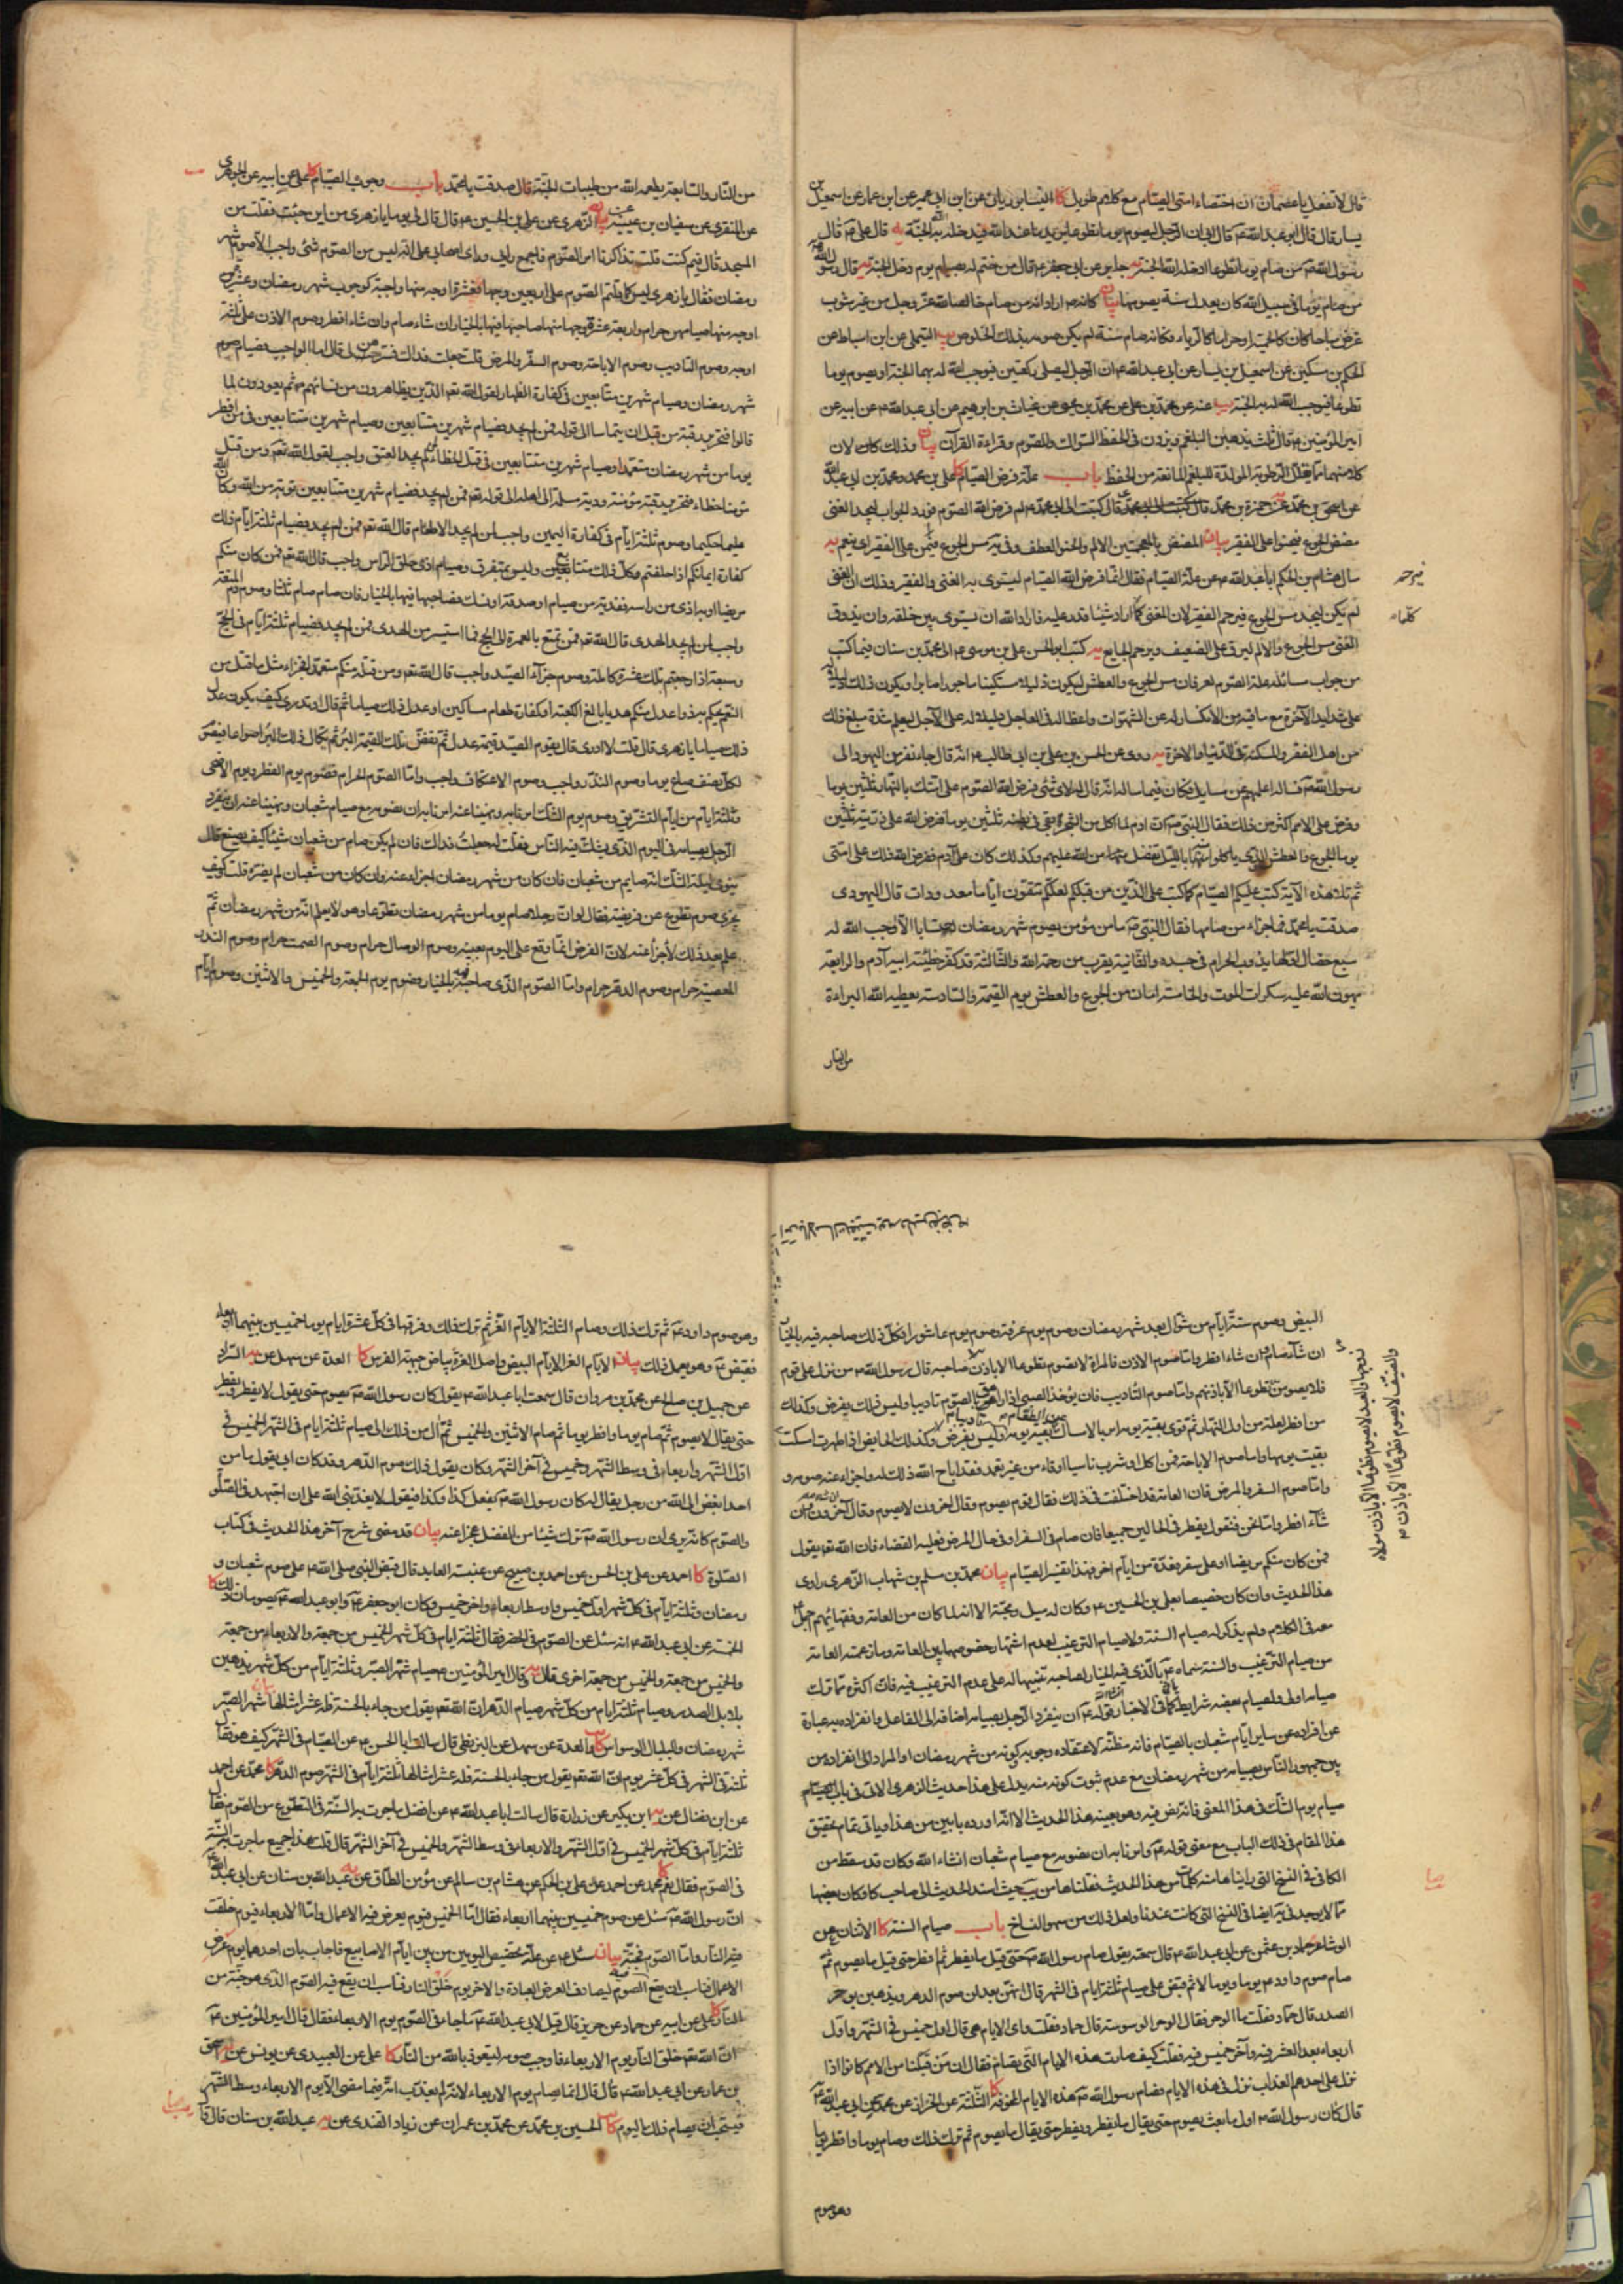 قال لا تفعل يا عثمان ان اختصاء امتى الصيام مع كلام طويل كا النيسابوريان عن ابن ابى عمير عن ابن عمار عن اسمعيل بن
يسار قال قال ابو عبد الله ع قال ابى ان الرجل ليصوم يوما تطوعا يريد ما عند الله فيدخله الله به الجنة يه قال على ع قال
رسول الله ص من صام يوما تطوعا ادخله الله الجنة يه جابر عن ابى جعفر ع قال من ختم له بصيام يوم دخل الجنة يه قال رسول الله ص
من صام يوما فى سبيل الله كان يعدل سنة يصومها بيان كانه ع اراد انه من صام خالصا لله عز وجل من غير شوب
غرض مباحا كان كالحمية او حراما كالرياء وكانه صام سنة لم يكن صومه بذلك الخلوص يب التيملى عن ابن اسباط عن
الحكم بن مسكين عن اسمعيل بن يسار عن ابى عبد الله ع ان الرجل ليصلى ركعتين فيوجب الله له بهما الجنة او يصوم يوما
تطوعا فيوجب الله له به الجنة يب عنه عن محمد بن على عن محمد بن يحيى عن غياث بن ابرهيم عن ابى عبد الله ع عن ابيه عن
امير المؤمنين ع قال ثلث يذهبن البلغم ويزدن فى الحفظ السواك والصوم وقراءة القرآن بيان وذلك كان لان
كلا منهما مما يقلل الرطوبة المولدة للبلغم المانعة من الحفظ باب علة فرض الصيام كا على بن محمد ومحمد بن ابى عبد الله
عن اسحق بن محمد عن حمزة بن محمد قال كتبت الى ابى محمد ع لم فرض الله الصوم فورد الجواب ليجد الغنى
مضض الجوع فيحنو على الفقير بيان المضض بالمعجمتين الالم والحنو العطف وفى يه مس الجوع فيمن على الفقير اى ينعم يه
سال هشام بن الحكم ابا عبد الله ع عن علة الصيام فقال انما فرض الله الصيام ليستوى به الغنى والفقير وذلك ان الغنى
لم يكن ليجد مس الجوع فيرحم الفقير لان الغنى كلما اراد شيئا قدر عليه فاراد الله ان يستوى بين خلقه وان يذوق
الغنى مس الجوع والالم ليرق على الضعيف ويرحم الجايع يه كتب ابو الحسن على بن موسى ع الى محمد بن سنان فيما كتب
من جواب مسائله علة الصوم لعرفان مس الجوع والعطش ليكون ذليلا مستكينا ماجورا صابرا ويكون ذلك دليلا له
على شدايد الآخرة مع ما فيه من الانكسار له عن الشهوات واعظا له فى العاجل دليلا له على الآجل ليعلم شدة مبلغ ذلك
من اهل الفقر والمسكنة فى الدنيا والاخرة يه وروى عن الحسن بن على بن ابى طالب ع انه قال جاء نفر من اليهود الى
رسول الله ص فساله اعلمهم عن مسايل فكان فيما ساله انه قال له لاى شئ فرض الله الصوم على امتك بالنهار ثلثين يوما
وفرض على الامم اكثر من ذلك فقال النبى ص ان ادم لما اكل من الشجرة بقى فى بطنه ثلثين يوما ففرض الله على ذريته ثلثين
يوما الجوع والعطش والذى ياكلونه بالليل تفضل من الله عليهم وكذلك كان على آدم ففرض الله ذلك على امتى
ثم تلا هذه الآية كتب عليكم الصيام كما كتب على الذين من قبلكم لعلكم تتقون اياما معدودات قال اليهودى
صدقت يا محمد فما جزاء من صامها فقال النبى ص ما من مؤمن يصوم شهر رمضان احتسابا الا اوجب الله له
سبع خصال اولها يذوب الحرام فى جسده والثانية يقرب من رحمة الله والثالثة قد كفر خطيئة ابيه آدم والرابعة
يهون الله عليه سكرات الموت والخامسة امان من الجوع والعطش يوم القيمة والسادسة يعطيه الله البراءة
من النار
من النار والسابعة يطعمه الله من طيبات الجنة قال صدقت يا محمد باب وجوه الصيام كا على عن ابيه عن الجوهرى
عن المنقرى عن سفيان بن عيينة عن الزهرى عن على بن الحسين ع قال قال لى يوما يا زهرى من اين جئت فقلت من
المسجد قال فيم كنتم قلت تذاكرنا امر الصوم فاجمع رايى وراى اصحابى على انه ليس من الصوم شئ واجب الا صوم شهر
رمضان فقال يا زهرى ليس كما قلتم الصوم على اربعين وجها فعشرة اوجه منها واجبة كوجوب شهر رمضان وعشرة
اوجه منها صيامهن حرام واربعة عشر وجها منها صاحبها فيها بالخيار ان شاء صام وان شاء افطر وصوم الاذن على ثلثة
اوجه وصوم التاديب وصوم الاباحة وصوم السفر والمرض قلت جعلت فداك فسرهن لى قال اما الواجب فصيام
شهر رمضان وصيام شهرين متتابعين فى كفارة الظهار لقول الله تعم الذين يظاهرون من نسائهم ثم يعودون لما
قالوا فتحرير رقبة من قبل ان يتماسا الى قوله فمن لم يجد فصيام شهرين متتابعين وصيام شهرين متتابعين فيمن افطر
يوما من شهر رمضان متعمدا وصيام شهرين متتابعين فى قتل الخطاء لمن لم يجد العتق واجب لقول الله تعم ومن قتل
مؤمنا خطاء فتحرير رقبة مؤمنة ودية مسلمة الى اهله الى قوله تعم فمن لم يجد فصيام شهرين متتابعين توبة من الله وكان الله
عليما حكيما وصوم ثلثة ايام فى كفارة اليمين واجب لمن لم يجد الاطعام قال الله تعم فمن لم يجد فصيام ثلثة ايام ذلك
كفارة ايمانكم اذا حلفتم وكل ذلك متتابع وليس بمتفرق وصيام اذى حلق الراس واجب قال الله تعم فمن كان منكم
مريضا او به اذى من راسه ففدية من صيام او صدقة او نسك فصاحبها فيها بالخيار فان صام صام ثلثا وصوم دم المتعة
واجب لمن لم يجد الهدى قال الله تعم فمن تمتع بالعمرة الى الحج فما استيسر من الهدى فمن لم يجد فصيام ثلثة ايام فى الحج
وسبعة اذا رجعتم تلك عشرة كاملة وصوم جزآء الصيد واجب قال الله تعم ومن قتله منكم متعمدا فجزاء مثل ما قتل من
النعم يحكم به ذوا عدل منكم هديا بالغ الكعبة او كفارة طعام مساكين او عدل ذلك صياما ثم قال او تدرى كيف يكون عدل
ذلك صياما يا زهرى قال قلت لا ادرى قال يقوم الصيد قيمة عدل ثم تفض تلك القيمة على البر ثم يكال ذلك البر اصواعا فيصوم
لكل نصف صاع يوما وصوم النذر واجب وصوم الاعتكاف واجب واما الصوم الحرام فصوم يوم الفطر ويوم الاضحى
وثلثة ايام من ايام التشريق وصوم يوم الشك امرنا به ونهينا عنه امرنا به ان نصومه مع صيام شعبان ونهينا عنه ان ينفرد
الرجل بصيامه فى اليوم الذى يشك فيه الناس فقلت له جعلت فداك فان لم يكن صام من شعبان شيئا كيف يصنع قال
ينوى ليلة الشك انه صايم من شعبان فان كان من شهر رمضان اجزاه عنه وان كان من شعبان لم يضره قلت وكيف
يجزى صوم تطوع عن فريضة فقال لو ان رجلا صام يوما من شهر رمضان تطوعا وهو لا يعلم انه من شهر رمضان ثم
علم بعد ذلك لاجزأ عنه لان الفرض انما وقع على اليوم بعينه وصوم الوصال حرام وصوم الصمت حرام وصوم النذر
المعصية حرام وصوم الدهر حرام واما الصوم الذى صاحبه فيه بالخيار فصوم يوم الجمعة والخميس والاثنين وصوم ايام
البيض وصوم ستة ايام من شوال بعد شهر رمضان وصوم يوم عرفة وصوم يوم عاشورا فكل ذلك صاحبه فيه بالخيار
ان شآء صام وان شاء افطر واما صوم الاذن فالمراة لا تصوم تطوعا الا باذن صاحبه قال رسول الله ص من نزل على قوم
فلا يصومن تطوعا الا باذنهم واما صوم التاديب فان يؤخذ الصبى اذا راهق بالصوم تاديبا وليس ذلك بفرض وكذلك
من افطر لعلة من اول النهار ثم قوى بقية يومه امر بالامساك بقية يومه وليس بفرض وكذلك الحايض اذا طهرت امسكت
بقيت يومها واما صوم الاباحة فمن اكل او شرب ناسيا او قاء من غير تعمد فقد اباح الله ذلك له واجزاء عنه صومه و
واما صوم السفر والمرض فان العامة قد اختلفت فى ذلك فقال قوم يصوم وقال اخرون لا يصوم وقال آخرون ان
شآء افطر واما نحن فنقول يفطر فى الحالين جميعا فان صام فى السفر او فى حال المرض فعليه القضاء فان الله تعم يقول
فمن كان منكم مريضا او على سفر فعدة من ايام اخر فهذا تفسير الصيام بيان محمد بن مسلم بن شهاب الزهرى راوى
هذا الحديث وان كان خصيصا بعلى بن الحسين ع وكان له ميل ومحبة الا انه لما كان من العامة وفقهائهم اجمل ع
معه فى الكلام ولم يذكر له صيام السنة ولا صيام الترغيب لعدم اشتهار خصوصهما بين العامة وما زعمته العامة
من صيام الترغيب والسنة سماه ع بالذى فيه الخيار لصاحبه تنبيها له على عدم الترغيب فيه فان اكثره مما ترك
صيامه اولى ولصيام بعضه شرايط كما فى الاخبار قوله ع ان ينفرد الرجل بصيامه اضافة الى الفاعل وانفراده به عبارة
عن افراده عن ساير ايام شعبان بالصيام فانه مظنة لاعتقاده وجوبه وكونه من شهر رمضان او المراد الى انفراده من
بين جمهور الناس بصيامه من شهر رمضان مع عدم ثبوت كونه منه يدل على هذا حديث الزهرى الاتى فى باب
صيام يوم الشك فى هذا المعنى فانه نص فيه وهو بعينه هذا الحديث الا انه اورده بابين من هذا وياتى تمام تحقيق
هذا المقام فى ذلك الباب مع معنى قوله ع وامرنا به ان نصومه مع صيام شعبان انشاء الله وكان قد سقط من
الكافى فى النسخ التى رايناها منه كلمات من هذا الحديث فنقلناها من يب حيث اسند الحديث الى صاحب كا وكان بعضها
مما لا يوجد فى يه ايضا فى النسخ التى كانت عندنا ولعل ذلك من سهو النساخ باب صيام السنة كا الاثنان عن
الوشا عن حماد بن عثمن عن ابى عبد الله ع قال سمعته يقول صام رسول الله ص حتى قيل ما يفطر ثم افطر حتى قيل ما يصوم ثم
صام صوم داود ع يوما ويوما لا ثم قبض على صيام ثلثة ايام فى الشهر قال انهن يعدلن صوم الدهر ويذهبن بوحر
الصدر قال حماد فقلت ما الوحر فقال الوحر الوسوسة قال حماد فقلت واى الايام هى قال اول خميس فى الشهر واول
اربعاء بعد العشر فيه وآخر خميس فيه فقلت كيف صارت هذه الايام التى تصام فقال ان من قبلنا من الامم كانوا اذا
نزل على احدهم العذاب نزل فى هذه الايام فصام رسول الله ص هذه الايام المخوفة كا الثلثة عن الخزاز عن محمد عن ابى عبد الله ع
قال كان رسول الله ص اول ما بعث يصوم حتى يقال ما يفطر ويفطر حتى يقال ما يصوم ثم ترك ذلك وصام يوما وافطر يوما
وهو صوم
وهو صوم داود ع ثم ترك ذلك وصام الثلثة الايام الغر ثم ترك ذلك وفرقها فى كل عشرة ايام يوما خميسين بينهما اربعاء
فقبض ع وهو يعمل ذلك بيان الايام الغر الايام البيض واصل الغرة بياض جبهة الفرس كا العدة عن سهل عن السراد
عن جميل بن صالح عن محمد بن مروان قال سمعت ابا عبد الله ع يقول كان رسول الله ص يصوم حتى يقول لا يفطر ويفطر
حتى يقال لا يصوم ثم صام يوما وافطر يوما ثم صام الاثنين والخميس ثم آل من ذلك الى صيام ثلثة ايام فى الشهر الخميس فى
اول الشهر واربعاء فى وسط الشهر وخميس فى آخر الشهر وكان يقول ذلك صوم الدهر وقد كان ابى يقول ما من
احد ابغض الى الله من رجل يقال له كان رسول الله ص يفعل كذا وكذا فيقول لا يعذبنى الله على ان اجتهد فى الصلوة
والصوم كانه يرى ان رسول الله ص ترك شيئا من الفضل عجزا عنه بيان قد مضى شرح آخر هذا الحديث فى كتاب
الصلوة كا احمد عن على بن الحسن عن احمد بن صبيح عن عنبسة العابد قال قبض النبى صلى الله ع على صوم شعبان و
رمضان وثلثة ايام فى كل شهر اول خميس واوسط اربعاء واخر خميس وكان ابو جعفر ع وابو عبد الله ع يصومان ذلك كا
الخمسة عن ابى عبد الله ع انه سئل عن الصوم فى الحضر فقال ثلثة ايام فى كل شهر الخميس من جمعة والاربعاء من جمعة
والخميس من جمعة اخرى قال وقال امير المؤمنين ع صيام شهر الصبر وثلثة ايام من كل شهر يذهبن
بلابل الصدر وصيام ثلثة ايام من كل شهر صيام الدهر ان الله تعم يقول من جاء بالحسنة فله عشر امثالها شهر الصبر
شهر رمضان والبلبال الوسواس كا العدة عن سهل عن البزنطى قال سالت ابا الحسن ع عن الصيام فى الشهر كيف هو فقال
ثلث فى الشهر فى كل عشر يوم ان الله تعم يقول من جاء بالحسنة فله عشر امثالها ثلثة ايام فى الشهر صوم الدهر كا محمد عن احمد
عن ابن فضال عن ابن بكير عن زرارة قال سالت ابا عبد الله ع عن افضل ما جرت به السنة فى التطوع من الصوم فقال
ثلثة ايام فى كل شهر الخميس فى اول الشهر والاربعاء فى وسط الشهر والخميس فى آخر الشهر قال قلت هذا جميع ما جرت به السنة
فى الصوم فقال نعم كا محمد عن احمد عن على بن الحكم عن هشام بن سالم عن مؤمن الطاق عن يه عبد الله بن سنان عن ابى عبد الله ع
ان رسول الله ص سئل عن صوم خميسين بينهما اربعاء فقال اما الخميس فيوم يعرض فيه الاعمال واما الاربعاء فيوم خلقت
فيه النار واما الصوم فجنة بيان سئل ع عن علة تخصيص اليومين من بين ايام الاسابيع فاجاب بان احدهما يوم عرض
الاعمال فناسب ان يقع الصوم فيه ليصادف العرض العبادة والاخر يوم خلق النار فناسب ان يقع فيه الصوم الذى هو جنة من
النار كا على عن ابيه عن حماد عن حريز قال قيل لابى عبد الله ع ما جاء فى الصوم يوم الاربعاء فقال قال امير المؤمنين ع
ان الله تعم خلق النار يوم الاربعاء فاوجب صومه ليتعوذ بالله من النار كا على عن العبيدى عن يونس عن اسحق
بن عمار عن ابى عبد الله ع قال قال انما يصام يوم الاربعاء لانه لم يعذب امة فيما مضى الا يوم الاربعاء وسط الشهر
فيستحب ان يصام ذلك اليوم كا الحسين بن محمد عن محمد بن عمران عن زياد القندى عن يه عبد الله بن سنان قال قال